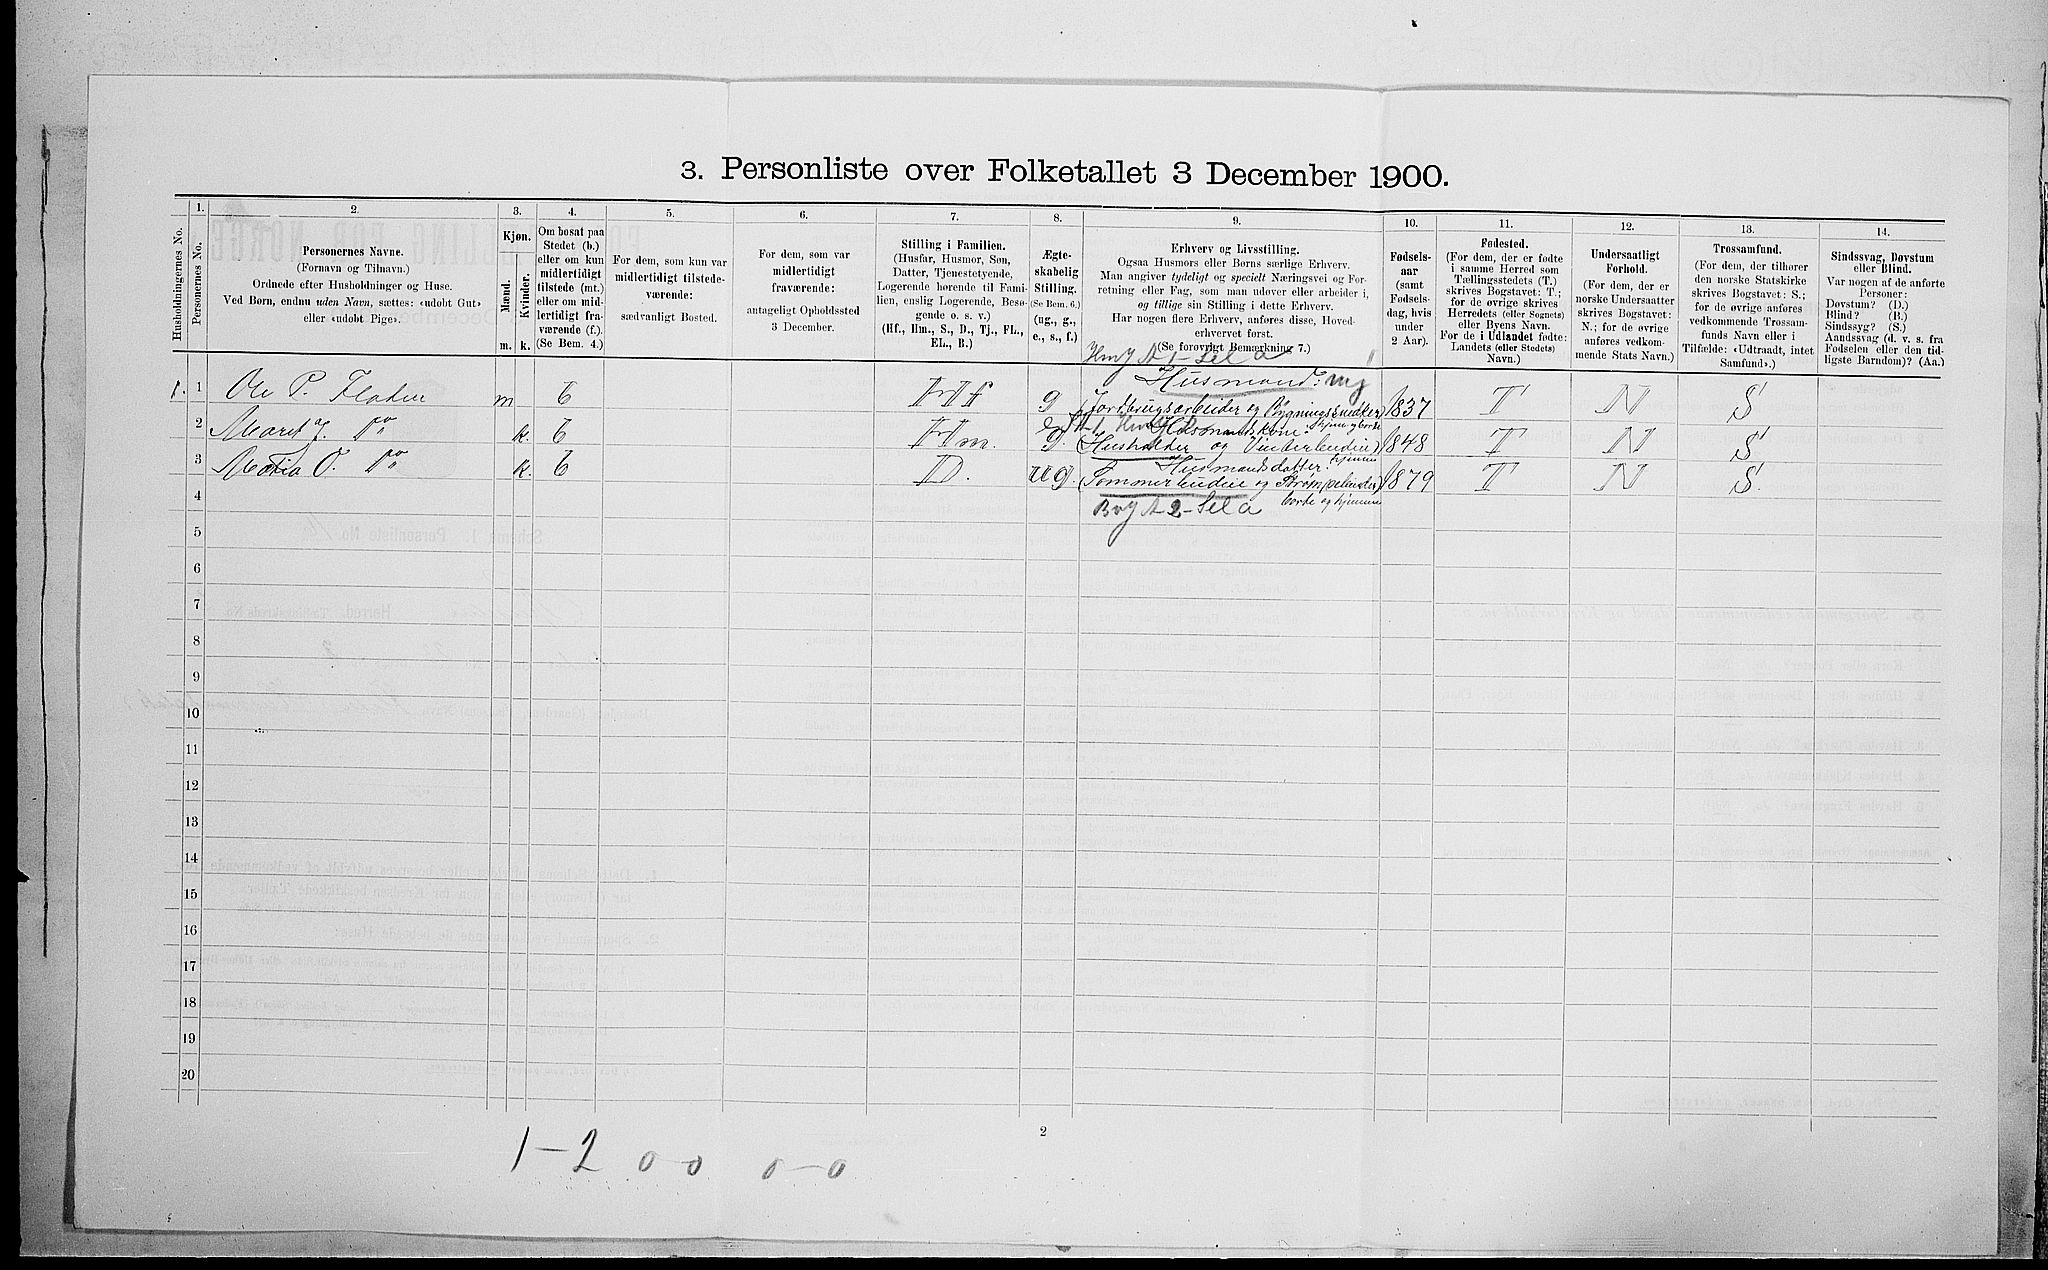 3. Personliste over Folketallet 3 December 1900.
1. 2. 3. 4. 5. 6. 7. 8. 9. 10. 11. 12. 13. 14.
Husholdningernes No.
Personernes No.
Personernes Navne.
(Fornavn og Tilnavn.)
Ordnede efter Husholdninger og Huse.
Ved Børn, endnu uden Navn, sættes: «udøbt Gut»
eller «udøbt Pige».
Kjøn.
Mænd.
Kvinder.
m. k.
Om bosat paa
Stedet (b.)
eller om kun
midlertidigt
tilstede (mt.)
eller om mid-
lertidigt fra-
værende (f.)
(Se Bem. 4.)
For dem, som kun var
midlertidigt tilstede-
værende:
sædvanligt Bosted.
For dem, som var
midlertidigt
fraværende:
antageligt Opholdssted
3 December.
Stilling i Familien.
(Husfar, Husmor, Søn,
Datter, Tjenestetyende,
Logerende hørende til Fami-
lien, enslig Logerende, Besø-
gende o. s. v.)
(Hf., Hm., S., D., Tj., FL.,
EL., B.)
Ægte-
skabelig
Stilling.
(Se Bem. 6.)
(ug., g.,
e., s., f.)
Erhverv og Livsstilling.
Ogsaa Husmors eller Børns særlige Erhverv.
Man angiver tydeligt og specielt Næringsvei og For-
retning eller Fag, som man udøver eller arbeider i,
og tillige sin Stilling i dette Erhverv.
Har nogen flere Erhverv, anføres disse, Hoved-
erhvervet først.
(Se forøvrigt Bemærkning 7.)
Fødsels-
aar
(samt
Fødsels-
dag, hvis
under
2 Aar).
Fødested.
(For dem, der er fødte
i samme Herred som
Tællingsstedets (T.)
skrives Bogstavet: T.;
for de øvrige skrives
Herredets (eller Sognets)
eller Byens Navn.
For de i Udlandet fødte:
Landets (eller Stedets)
Navn.)
Undersaatligt
Forhold.
(For dem, der er
norske Undersaatter
skrives Bogstavet:
N.; for de øvrige
anføres vedkom-
mende Stats Navn.)
Trossamfund.
(For dem, der tilhører
den norske Statskirke
skrives Bogstavet: S.;
for de øvrige anføres
vedkommende Trossam-
funds Navn eller i
Tilfælde: «Udtraadt, intet
Samfund».)
Sindssvag, Døvstum
eller Blind.
Var nogen af de anførte
Personer:
Døvstum? (D.)
Blind? (B.)
Sindssyg? (S.)
Aandssvag (d. v. s. fra
Fødselen eller den tid-
ligste Barndom)? (Aa.)
Husmand:
1. 1 Ole P. Fladen m b Hf g (Jordbrugsarbeider og Bygningssnedker) 1837 T N S
Husmandskone.
2 Maret J. do k. b Hm. g. (Husholder og Vinterbudeie) 1848 T N S
Husmandsdatter. hjemme
3 Maria O. do k. b D. ug. (Sommerbudeie og 1879 T N S.
borte og hjemme
4
5
6
7
8
9
10
11
12
13
14
15
16
17
18
19
20
2
1-2 0-0 0-0